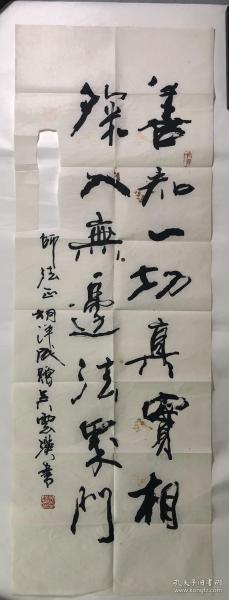 善知一切真實相
深入無邊法界門
師法正
雲漢書
孔夫子旧书网